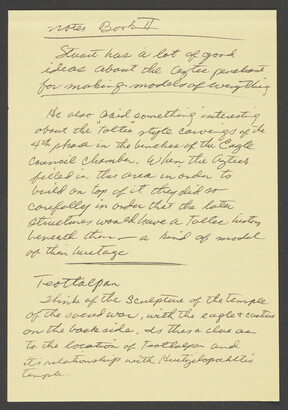 Notes Book II
Stuart has a lot of good
ideas about the Aztec penchant
for making models of everything
He also said something interesting
about the "Toltec" style carvings of the
4th phase in the benches of the Eagle
Council Chamber. When the Aztecs
filled in this area in order to
build on top of it they did so
carefully in order that the later
structures would have a Toltec history
beneath them — a kind of model
of their heritage
Teotlalpan
Think of the sculpture of the temple
of the sacred war, with the eagle & cactus
on the back side, is this a clue as
to the location of Teotlalpan and
its relationships with Huitzilopochtli's
temple